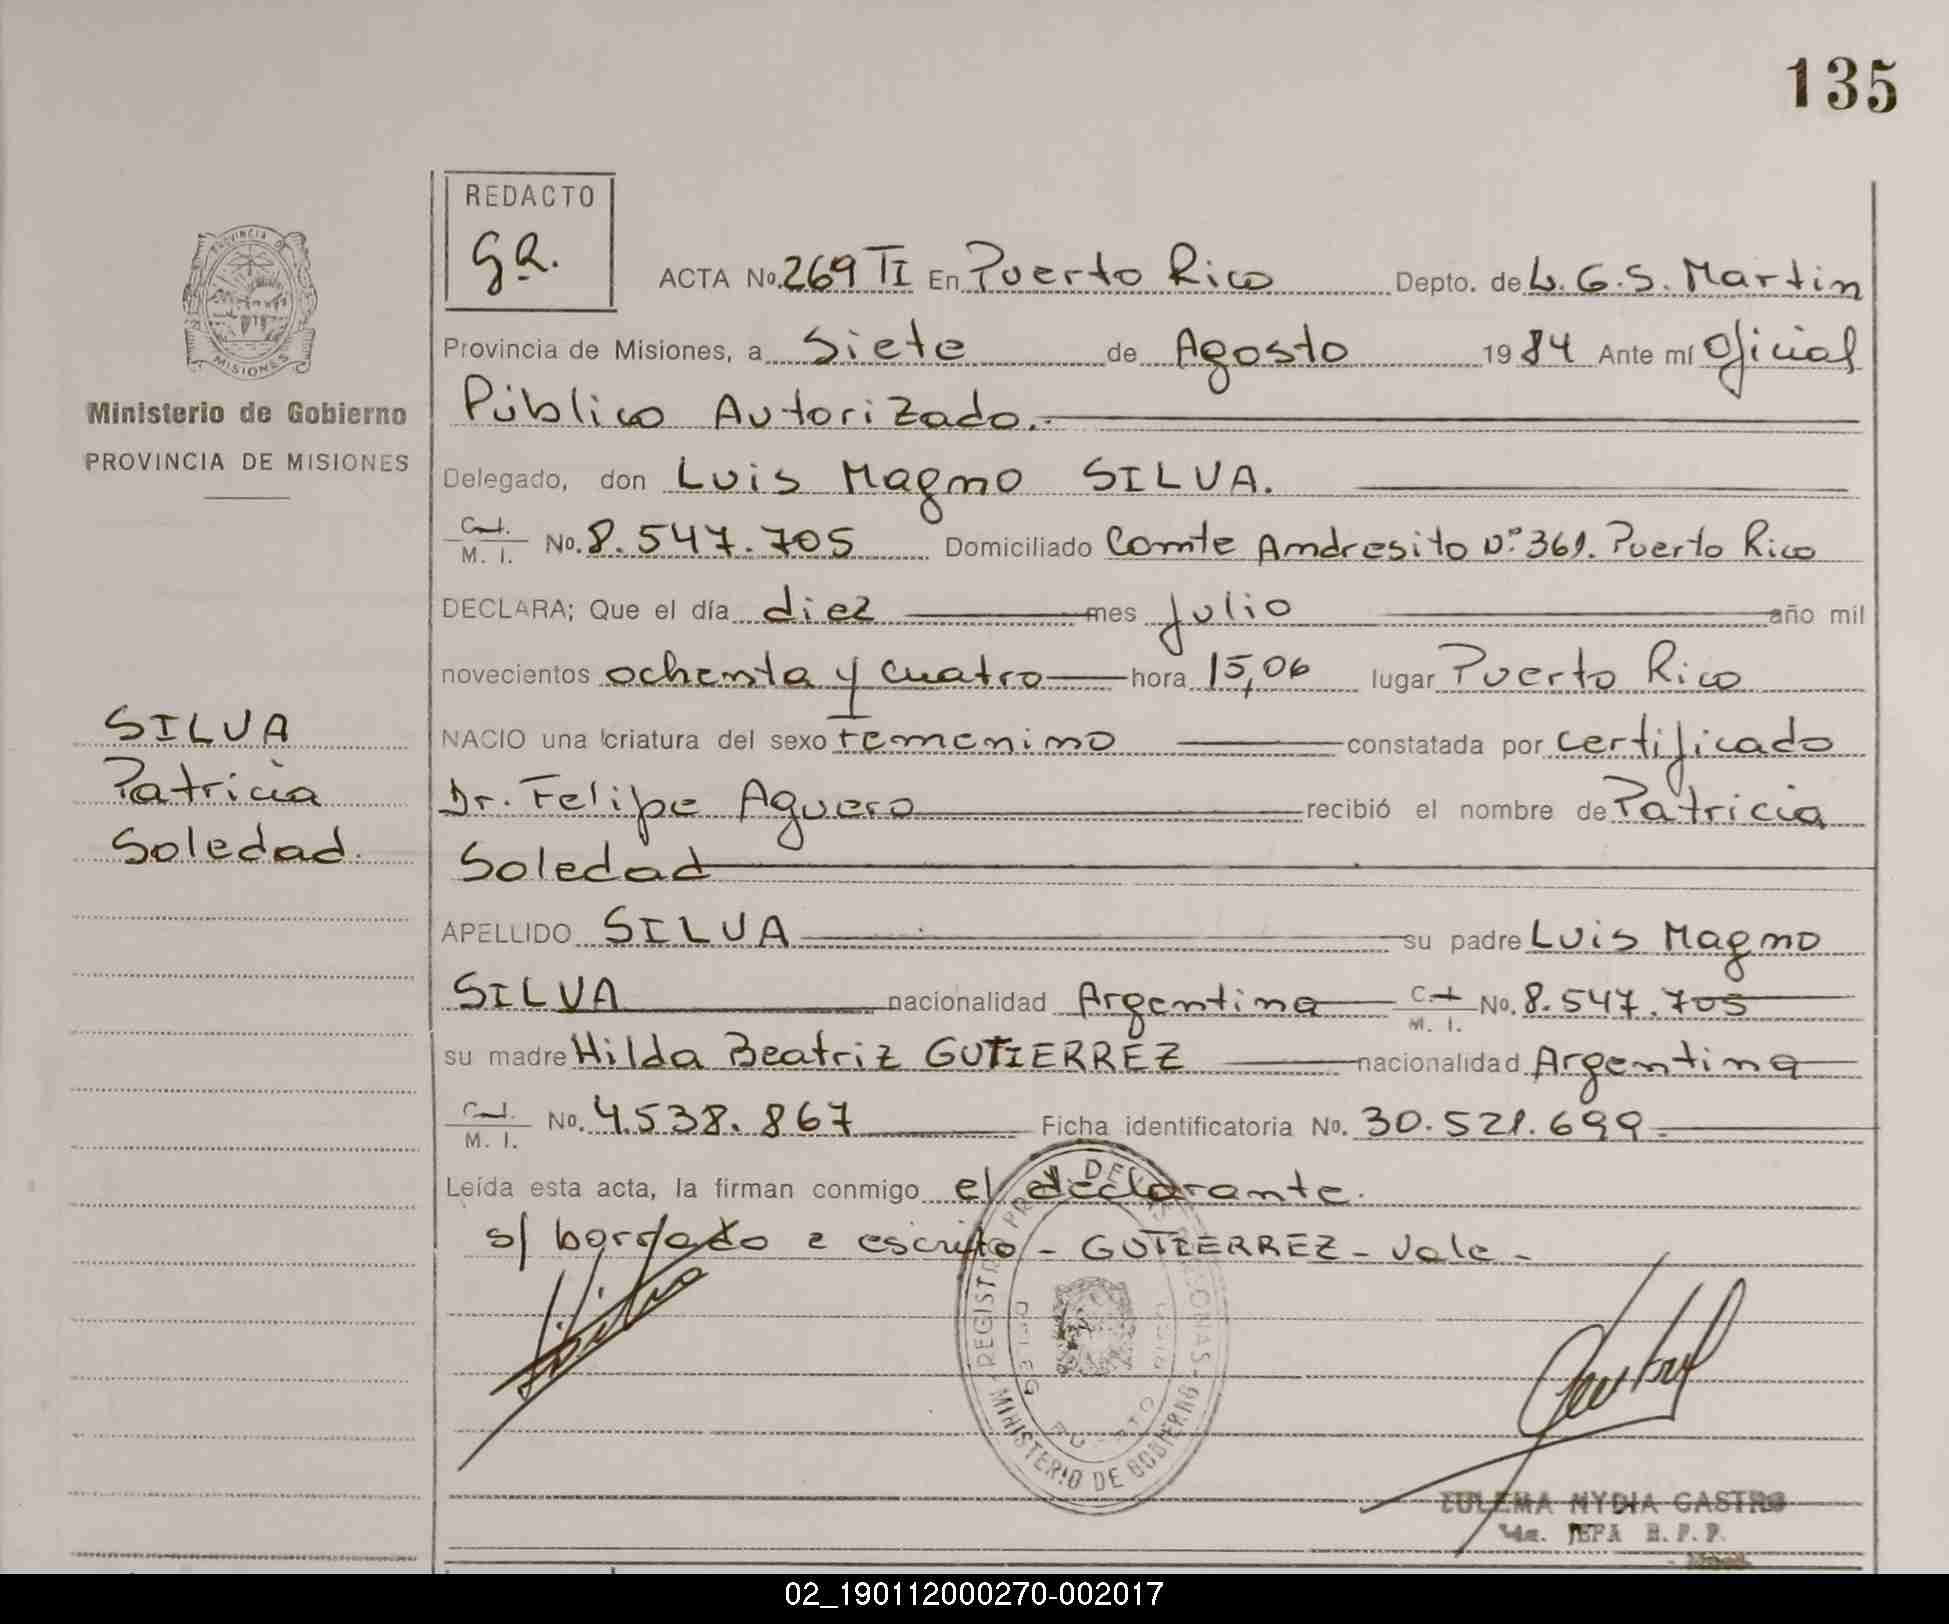 135
REDACTO
G.R.
ACTA No. 269 TI En Puerto Rico Depto. de L. G. S. Martin
PROVINCIA DE
MISIONES
Ministerio de Gobierno
PROVINCIA DE MISIONES
Provincia de Misiones, a Siete de Agosto 1984 Ante mí Oficial
Público Autorizado.-
Delegado, don Luis Magno SILVA.
M. I. No. 8.547.705 Domiciliado Comte Andresito Nº 361. Puerto Rico
DECLARA; Que el día diez mes Julio año mil
novecientos ochenta y cuatro hora 15,06 lugar Puerto Rico
SILVA
Patricia
Soledad.
NACIO una criatura del sexo Femenino constatada por certificado
Dr. Felipe Aguero recibió el nombre de Patricia
Soledad
APELLIDO SILVA su padre Luis Magno
SILVA nacionalidad Argentina M. I. No. 8.547.705
su madre Hilda Beatriz GUTIERREZ nacionalidad Argentina
M. I. No. 4.538.867 Ficha identificatoria No. 30.521.699.
Leída esta acta, la firman conmigo el declarante.
s/ borrado e escrito - GUTIERREZ - Vale -
MINISTERIO DE GOBIERNO
ZULEMA NYDIA CASTRO
JEFA R. P. P.
02_190112000270-002017